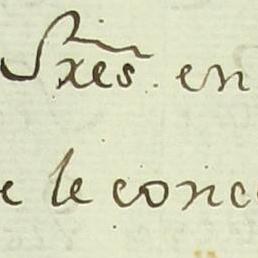 Sxes. en
e le conc